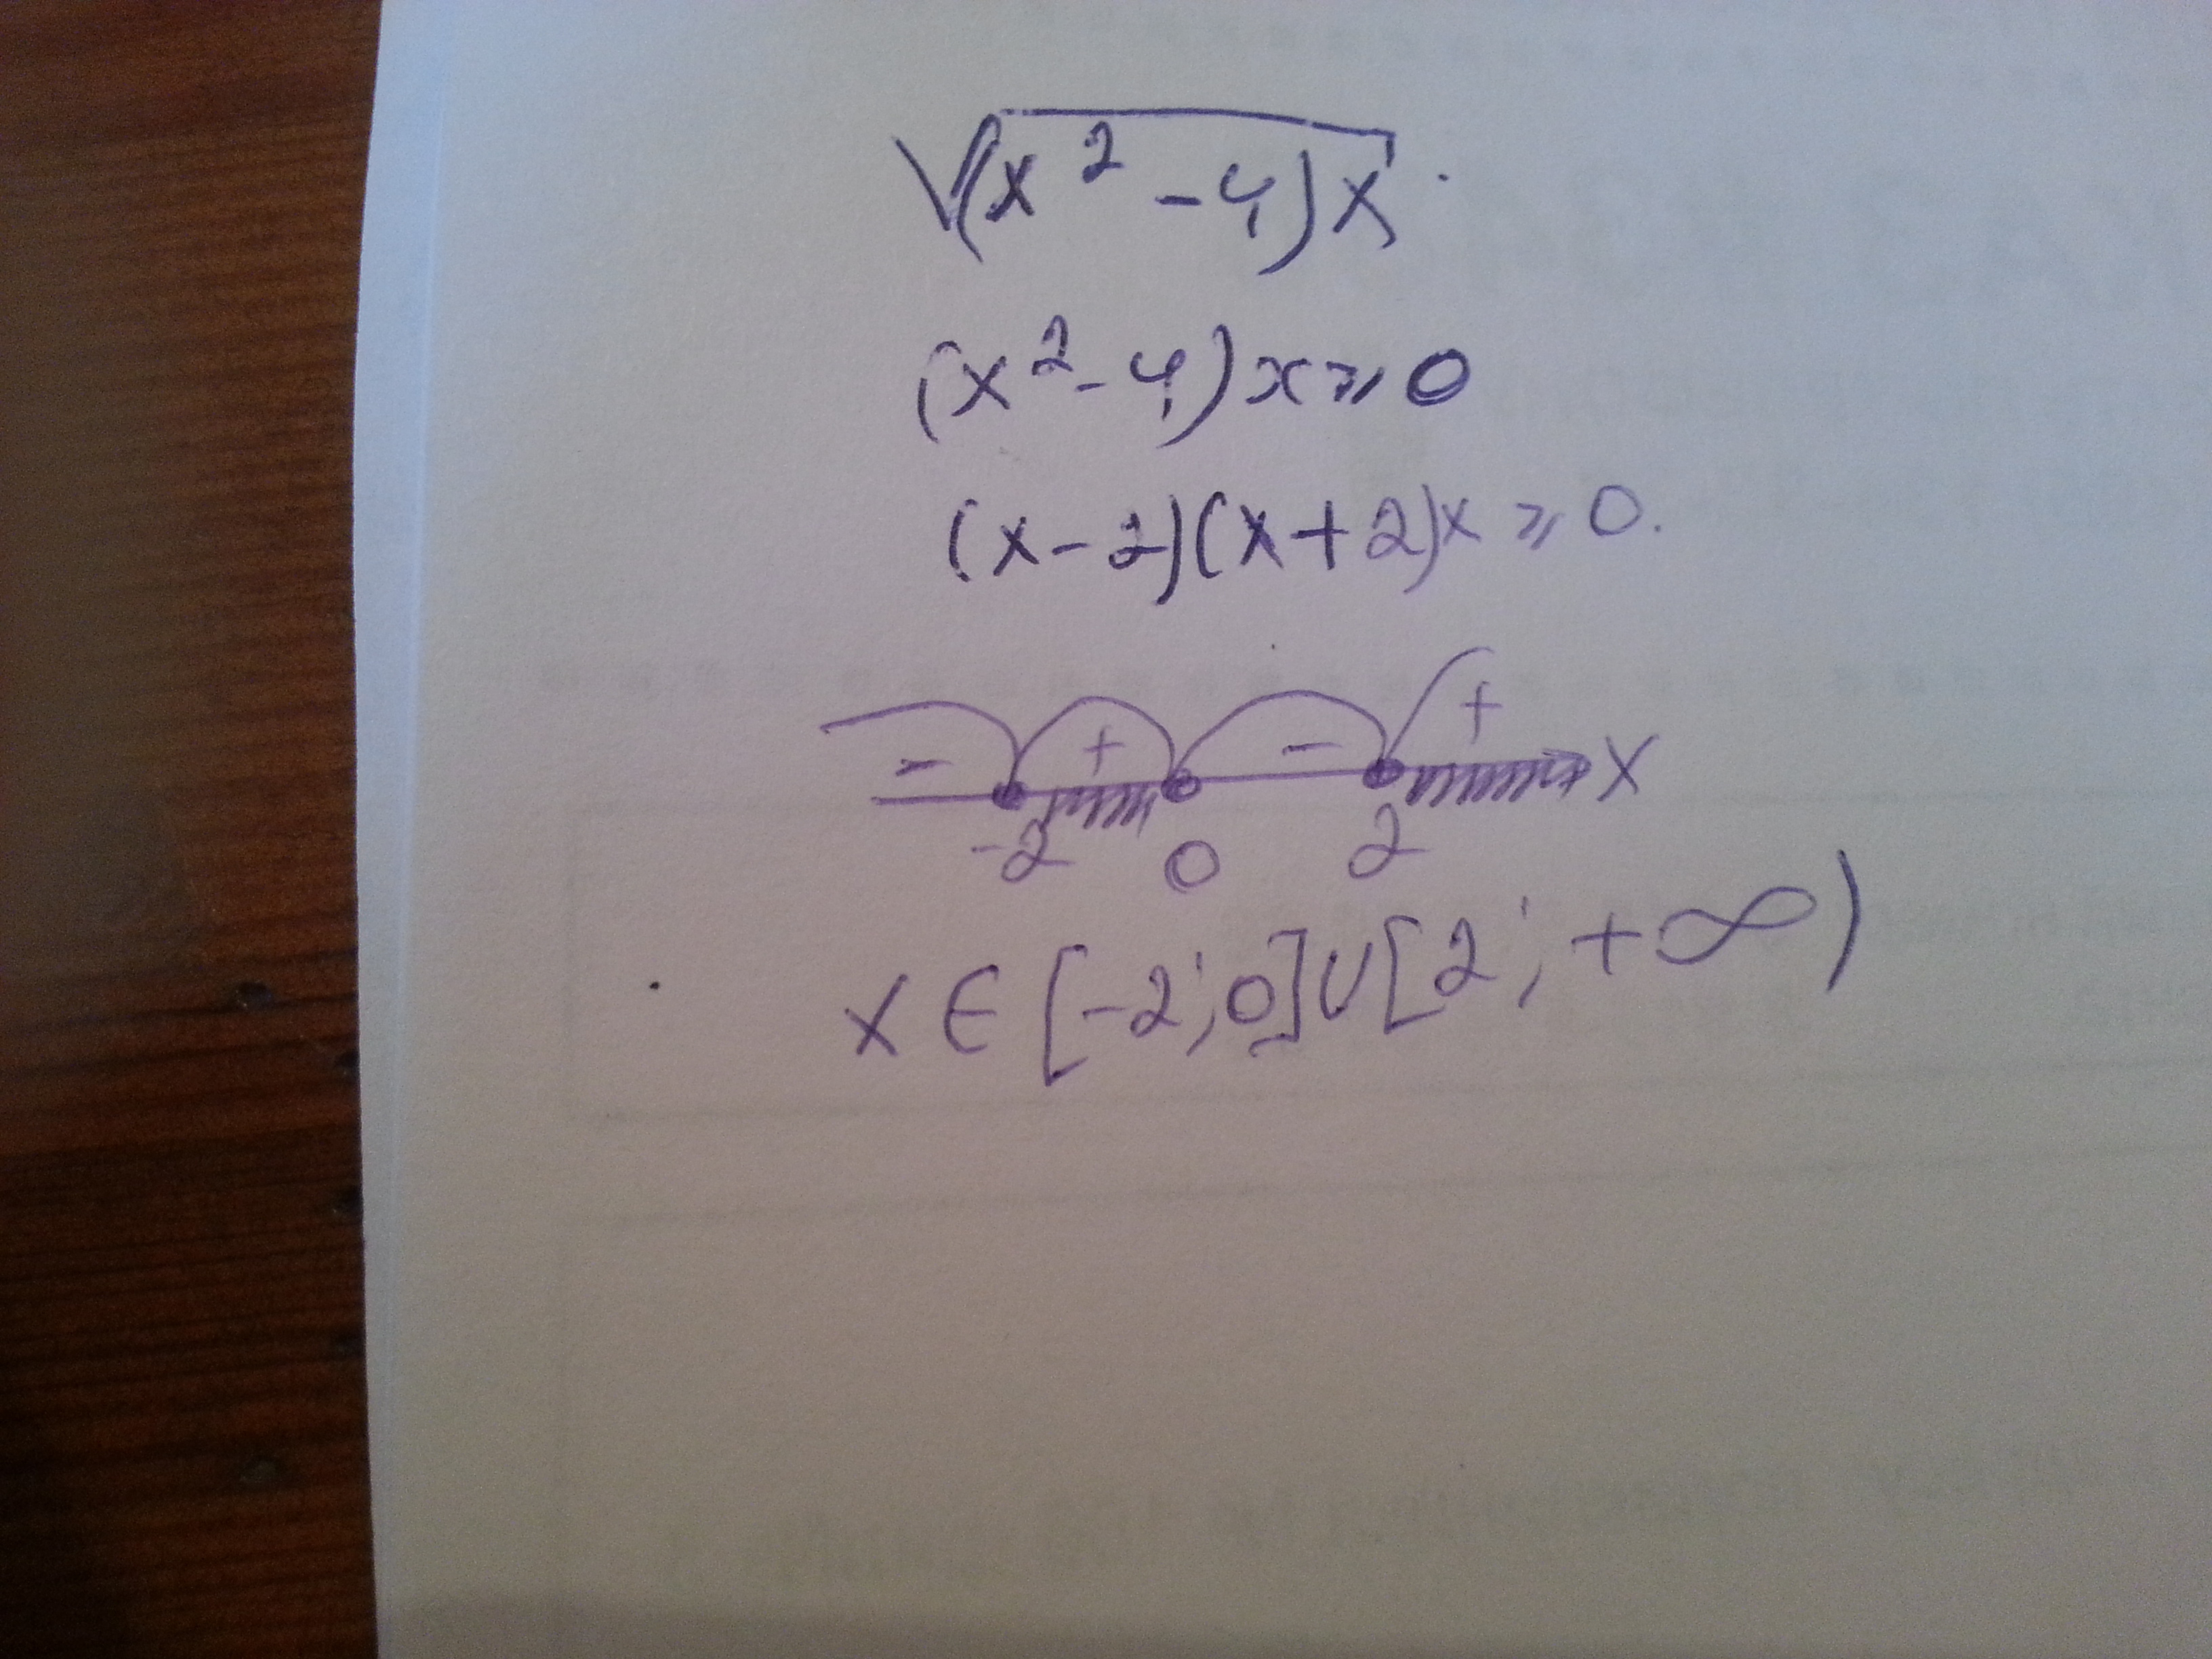 √(x² - 4)x
(x² - 4)x ≥ 0
(x - 2)(x + 2)x ≥ 0.
- + - + x
-2 0 2
x ∈ [-2; 0] ∪ [2; +∞)